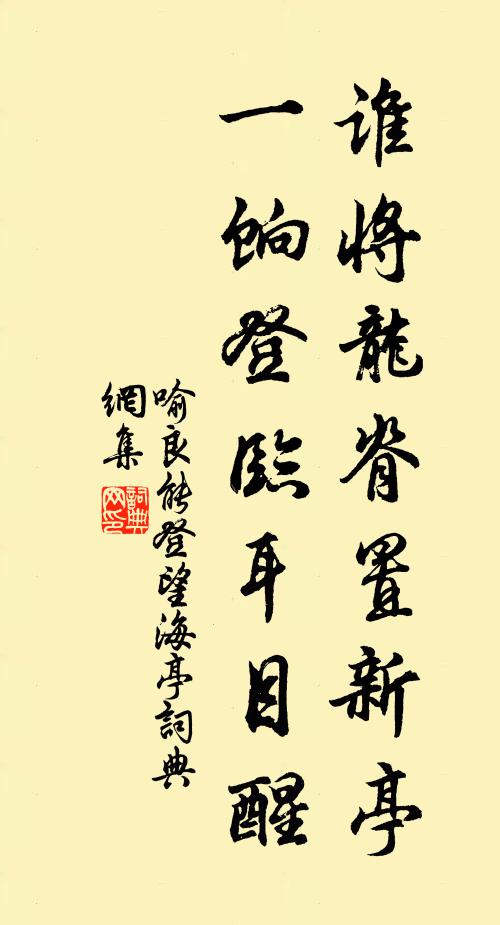 谁將龍脊置新亭
一餉登臨耳目醒
喻良能登望海亭詞典
網集
詞典
网印